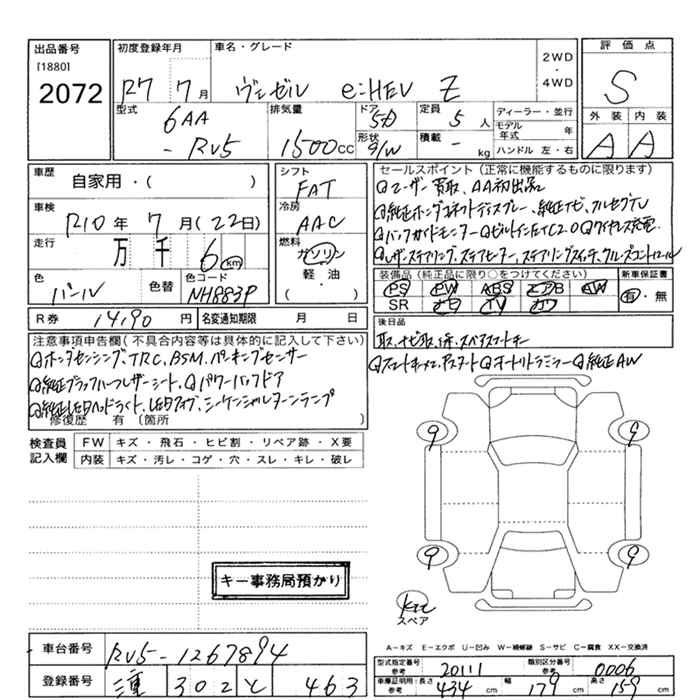 出品番号
[1880]
2072
初度登録年月
R7 7月
車名・グレード
ヴェゼル e:HEV Z
2WD
・
4WD
評価点
S
外装 内装
A A
型式
6AA
-RV5
排気量
1500cc
ドア
5D
形状
S/W
定員
5人
積載
- kg
ディーラー・並行
モデル年式 年
ハンドル 左・右
車歴
自家用・( )
車検
R10年 7月(22日)
走行
万 千 6km
色
パール
色替
色コード
NH883P
シフト
FAT
冷房
AAC
燃料
ガソリン
軽・油
・( )
R券 14,190円
名変通知期限 月 日
セールスポイント(正常に機能するものに限ります)
ユーザー買取、AA初出品
純正ホンダコネクトディスプレー、純正ナビ、フルセグTV
バックガイドモニター ビルトインETC2.0 ワイヤレス充電
レザーステアリング、ステアヒーター、ステアリングスイッチ、クルーズコントロール
装備品(純正品に限り○をつけてください)
PS PW ABS エアB AW
SR ナビ TV カワ
新車保証書
有・無
後日品
取、ナビ取、保、スペアスマートキー
スマートキー×2、Pスタート オートリトラミラー 純正AW
注意事項申告欄(不具合内容等は具体的に記入して下さい)
ホンダセンシング、TRC、BSM、パーキングセンサー
純正ブラックハーフレザーシート、パワーバックドア
純正LEDヘッドライト、LEDフォグ、シーケンシャルターンランプ
修復歴 有(箇所 )
検査員記入欄
FW キズ・飛石・ヒビ割・リペア跡・X要
内装 キズ・汚レ・コゲ・穴・スレ・キレ・破レ
9 9
9 9
キー事務局預かり
スペア
A－キズ E－エクボ U－凹み W－補修跡 S－サビ C－腐食 XX－交換済
車台番号 RV5-1267894
登録番号 三重 302 と 463
型式指定番号
参考
20111
類別区分番号
参考
0006
車庫証明用:長さ
参考
434cm
幅
179cm
高さ
159cm